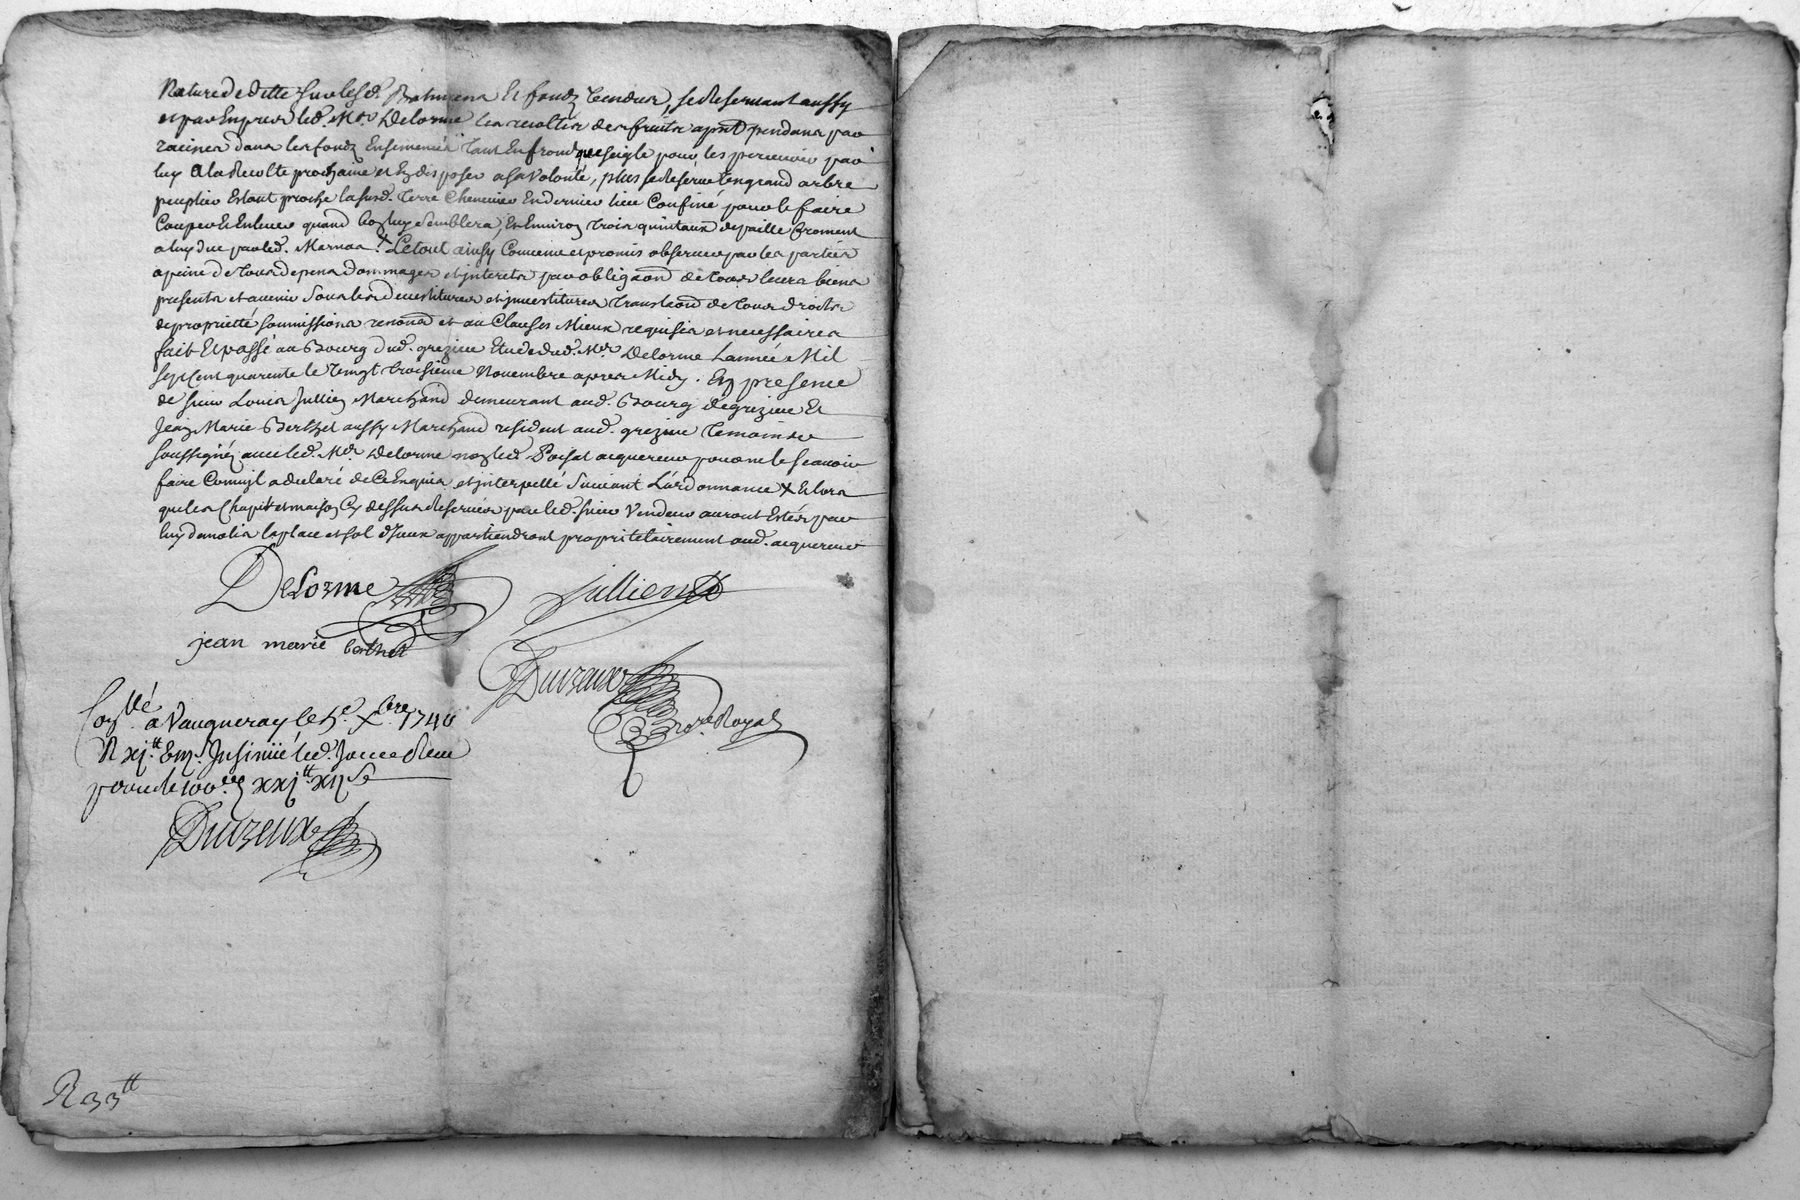 Nature de dette sur lesd. Batimens et fondz vendus, se reservant aussy
et par Exprès led. Mr. Delorme les recoltes des fruits apnt pendans par
racines dans les fondz Ensemencés tant En froment que seigle pour les percevoir par
luy a la Recolte prochaine et En disposer a sa volonté, plus se Reserve Un grand arbre
peuplier Estant proche la susd. Terre Cheneviere En dernier lieu Confiné pour le faire
Couper et Enlever quand bon luy semblera, et Environ trois quintaux de paille froment
a luy due par led. Marnas. Le tout ainsy Convenu et promis observer par les parties
a peine de tous depens dommages et interets par obligaond de tous leurs biens
presents et avenir sous les devestitures et investitures translaond de tous droits
de proprietté soumissions renond et au Clauses Mieux requises et necessaires
fait Et passé au Bourg dud. grezieu Etude dud. Mr. Delorme L'année Mil
sept Cent quarente le vingt troisieme Novembre apres Midy. En presence
de sieur Louis Jullien Marchand demeurant aud. Bourg de grezieu Et
Jean Marie Berthet aussy Marchand resident aud. grezieu temoins
soussignéz avec led. Mr. Delorme non led. acquereur pour ne le scavoir
faire Comme il a declaré de Ce Enquis et interpellé suivant L'ordonnance X Et lors
que les Chapit et maison Cy dessus Reservés par led. sieur Vendeur auront Estés par
luy demolis la place et sol d'Iceux appartiendront proprietairement aud. acquereur
Delorme Jullien
jean marie berthet
Duizeux
Nre. Royal
Conlé à Vaugneray le 5e. Xbre 1740
R xj.tt Em. Insinüé led. Jour Reçu
pour le 100.e xxj tt. xij s
Duizeux
R 33 tt